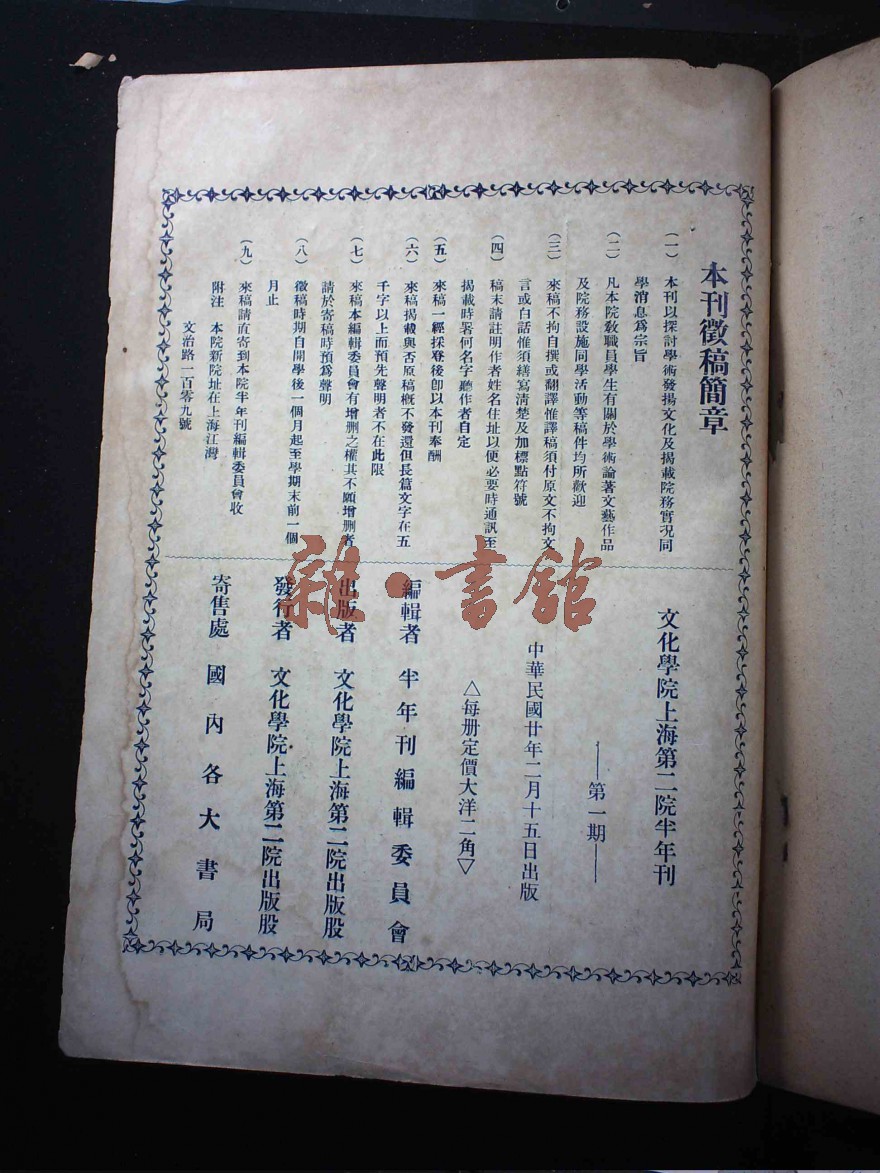 本刊徵稿簡章
（一）本刊以探討學術發揚文化及揭載院務實況同
學消息爲宗旨
（二）凡本院敎職員學生有關於學術論著文藝作品
及院務設施同學活動等稿件均所歡迎
（三）來稿不拘自撰或翻譯惟譯稿須付原文不拘文
言或白話惟須繕寫清楚及加標點符號
（四）稿末請註明作者姓名住址以便必要時通訊至
揭載時署何名字聽作者自定
（五）來稿一經採登後卽以本刊奉酬
（六）來稿揭載與否原稿槪不發還但長篇文字在五
千字以上而預先聲明者不在此限
（七）來稿本編輯委員會有增删之權其不願增删者
請於寄稿時預爲聲明
（八）徵稿時期自開學後一個月起至學期末前一個
月止
（九）來稿請直寄到本院半年刊編輯委員會收
附注　本院新院址在上海江灣
文治路一百零九號
文化學院上海第二院半年刊
——第一期——
中華民國廿年二月十五日出版
△每册定價大洋二角▽
編輯者　半年刊編輯委員會
出版者　文化學院上海第二院出版股
發行者　文化學院上海第二院出版股
寄售處　國內各大書局
雜·書館